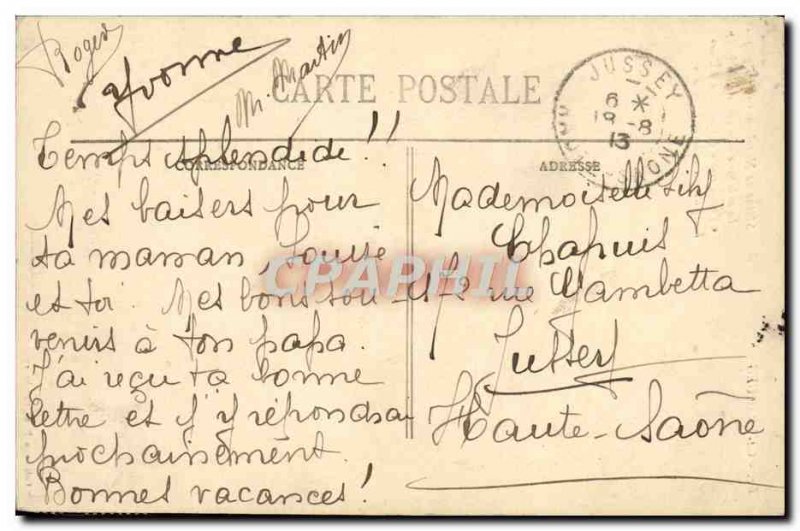 Roger
Yvonne
M. Martin
CARTE POSTALE
JUSSEY
6 *
18-8
13
SAONE
Temps splendide!!
CORRESPONDANCE
ADRESSE
Mes baisers pour
ta maman, Louise
et toi. Mes bons sou-
venirs à ton papa.
J'ai reçu ta bonne
lettre et j'y répondrai
prochainement.
Bonnes vacances!
Mademoiselle
Chapuis
rue Gambetta
Jussey
Haute-Saône
CPAPHIL